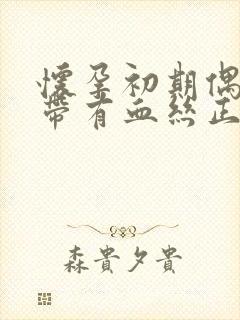 懷孕初期偶
帶有血絲正
森貴夕貴